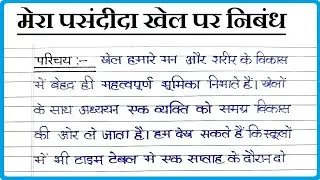 मेरा पसंदीदा खेल पर निबंध
परिचय :- खेल हमारे मन और शरीर के विकास
में बेहद ही महत्वपूर्ण भूमिका निभाते हैं। खेलों
के साथ अध्ययन एक व्यक्ति को समग्र विकास
की ओर ले जाता है। हम देख सकते हैं कि स्कूलों
में भी टाइम टेबल मे एक सप्ताह के दौरान दो